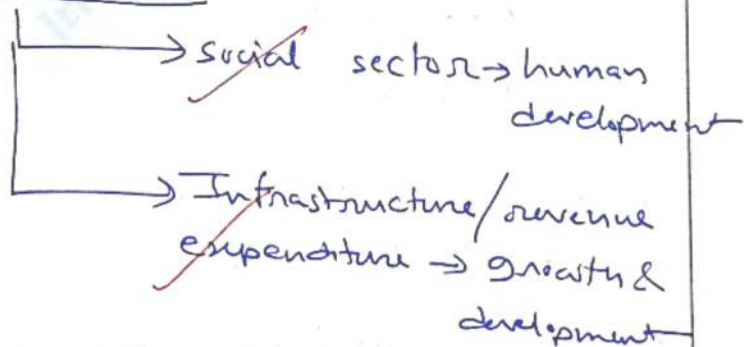 → Social sector → human
development
→ Infrastructure/revenue
expenditure → growth &
development